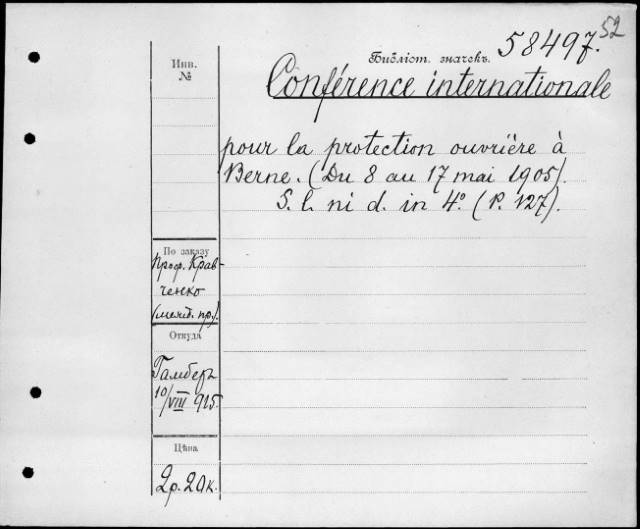 52
58497.
Библіот. значекъ.
Инв.
№
Conférence internationale
pour la protection ouvrière à
Berne. (Du 8 au 17 mai 1905).
S. l. ni d. in 4º. (P. 127).
По заказу
Проф. Крав-
ченко
Откуда
Гамберъ
10/VIII 915.
Цѣна
2р. 20к.